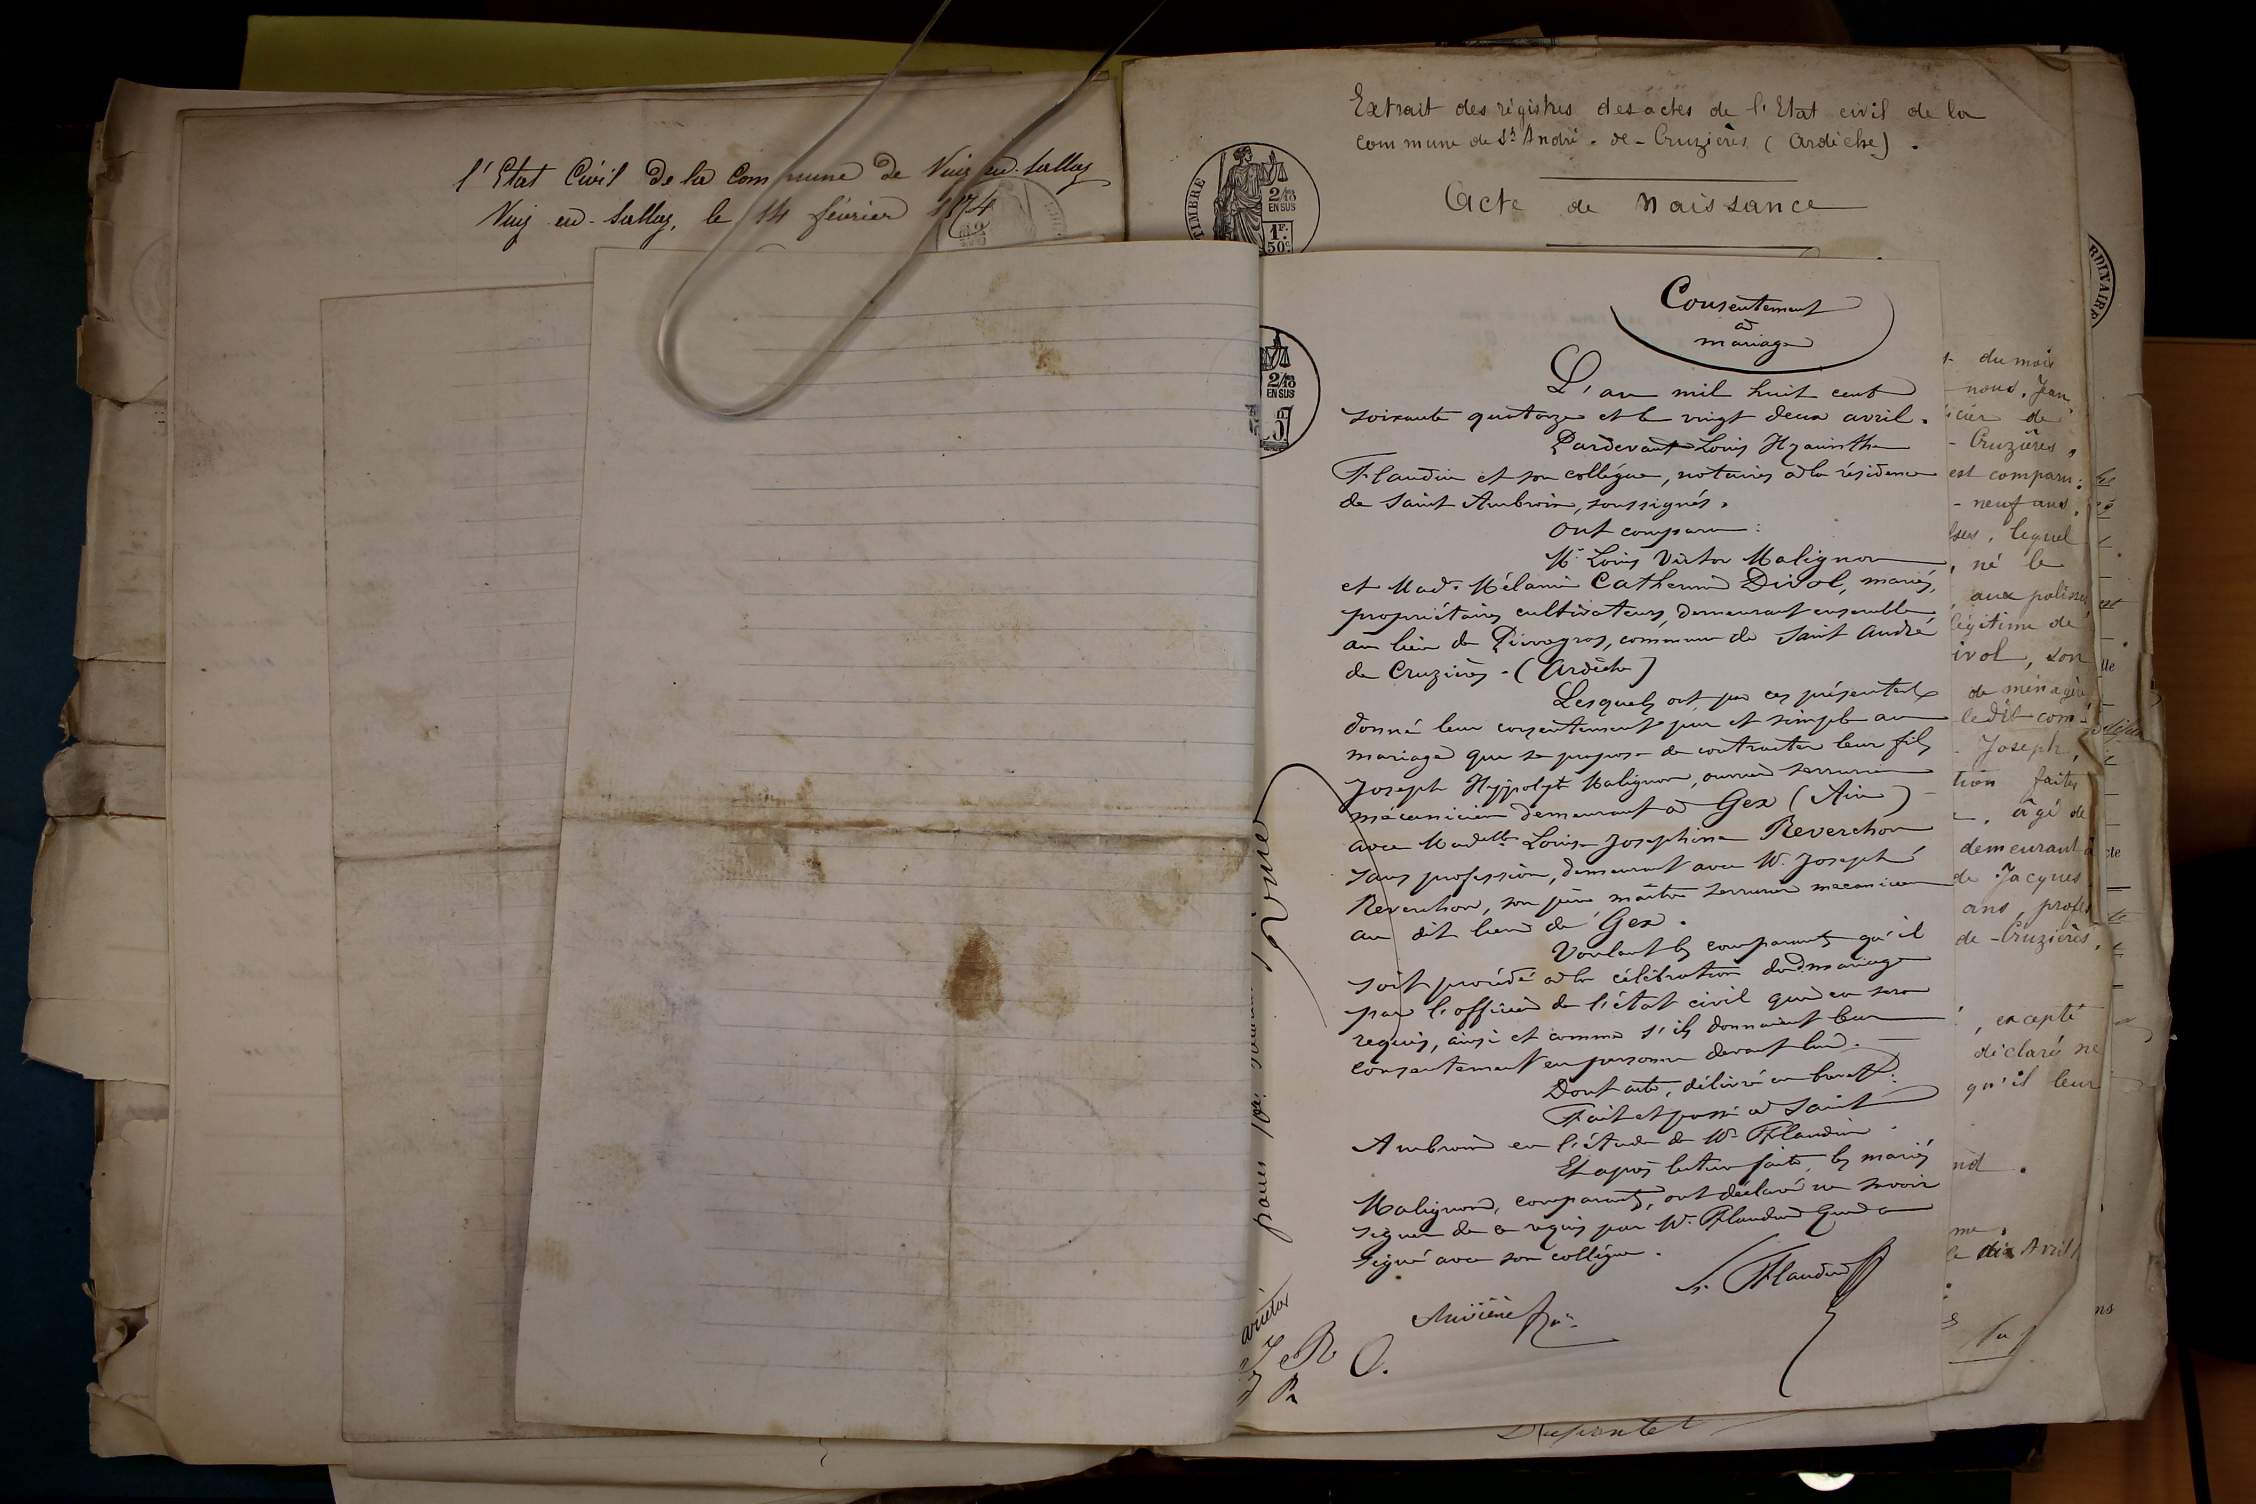 l'Etat Civil de la Commune de
le 14 février 1874
Extrait des régistres des actes de l'Etat civil de la
commune de St André-de-Cruzières (Ardèche).
Acte de Naissance
TIMBRE
2/10
EN SUS
1F.
50c.
RDINAIRE
2/10
EN SUS
Consentement
à
mariage
L'an mil huit cent
soixante quatorze et le vingt deux avril.
Pardevant Louis Hyacinthe
Flandin et son collégue, notaires à la résidence
de Saint Ambroix, soussignés,
Ont comparu :
Mr Louis Victor Malignon
et Made Mélanie Catherine Divol, mariés,
propriétaires cultivateurs, demeurant ensemble
au lieu de Pierregros, commune de Saint André
de Cruzières - (Ardèche)
Lesquels ont par ces présentes
donné leur consentement pur et simple au
mariage que se propose de contracter leur fils
Joseph Hyppolyte Malignon, ouvrier serrurier
mécanicien demeurant à Gex (Ain)
avec Madelle Louise Joséphine Reverchon
sans profession, demeurant avec Mr Joseph
Reverchon, son père maître serrurier mecanicien
au dit lieu de Gex.
Voulant les comparants qu'il
soit procédé à la célébration dud mariage
par l'officier de l'état civil qui en sera
requis, ainsi et comme s'ils donnaient leur
consentement en personne devant lui.
Dont acte, délivré en brevet.
Fait et passé à Saint
Ambroix en l'étude de Me Flandin.
Et après lecture faite, les mariés
Malignon, comparants, ont déclaré ne savoir
signer de ce requis par Me Flandin qui a
signé avec son collégue.
L. Flandin
du mois
nous, Jean
de
Cruzières,
est comparu :
neuf ans,
lequel
, né le
légitime de
ivol, son
de ménagère
ledit com-
Joseph,
tion faites
, âgé de
demeurant à
de Jacques
ans, profes
de-Cruzières,
, excepté
déclaré ne
qu'il leur
le dix Avril